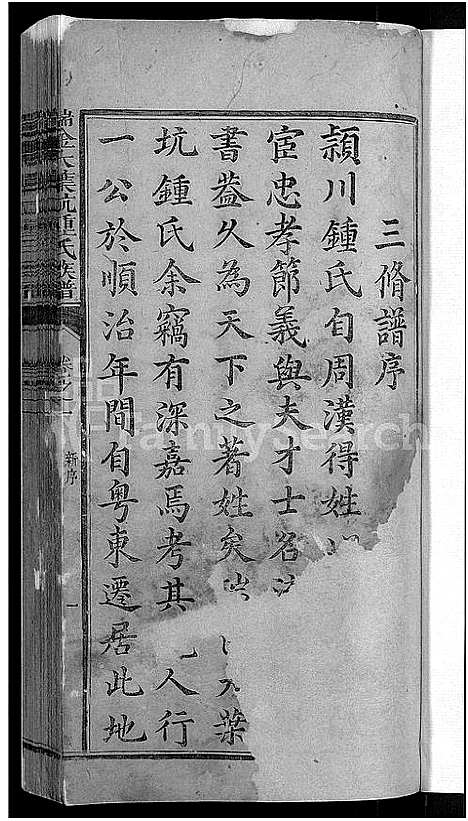 三脩譜序
潁川鍾氏自周漢得姓
宦忠孝節義與夫才士名
書葢久為天下之著姓矣 葉
坑鍾氏余竊有深嘉焉考其 人行
一公於順治年間自粵東遷居此地
瑞金大葉坑鍾氏族譜
新序
一
FamilySearch